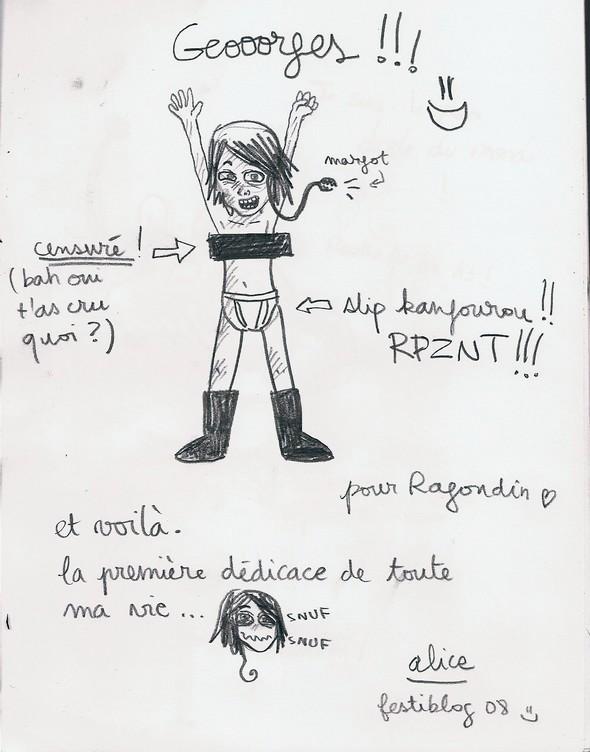 Geooorges !!!
margot
censuré !
(bah oui
t'as cru
quoi ?)
slip kangourou !!
RPZNT !!!
pour Ragondin ♡
et voilà.
la première dédicace de toute
ma vie ...
SNUF
SNUF
alice
festiblog 08